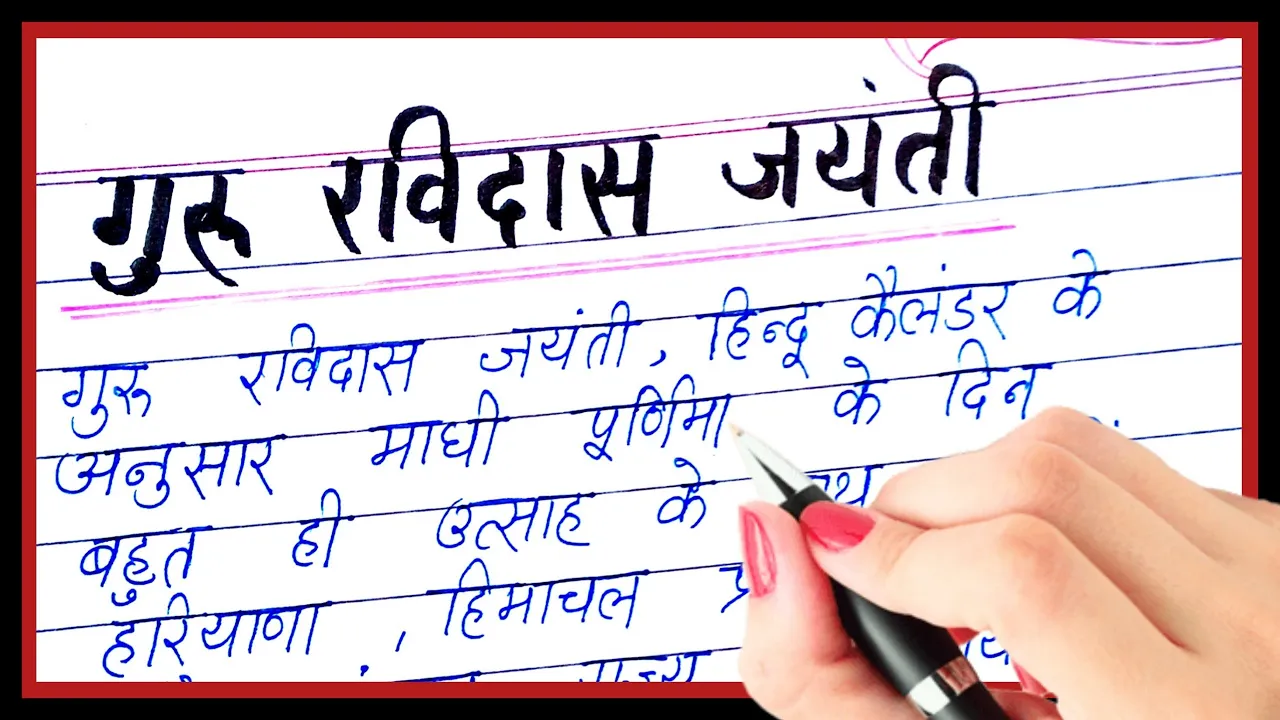 गुरू रविदास जयंती
गुरू रविदास जयंती, हिन्दू कैलंडर के
अनुसार माघी पूर्णिमा के दिन
बहुत ही उत्साह के
हरियाणा , हिमाचल